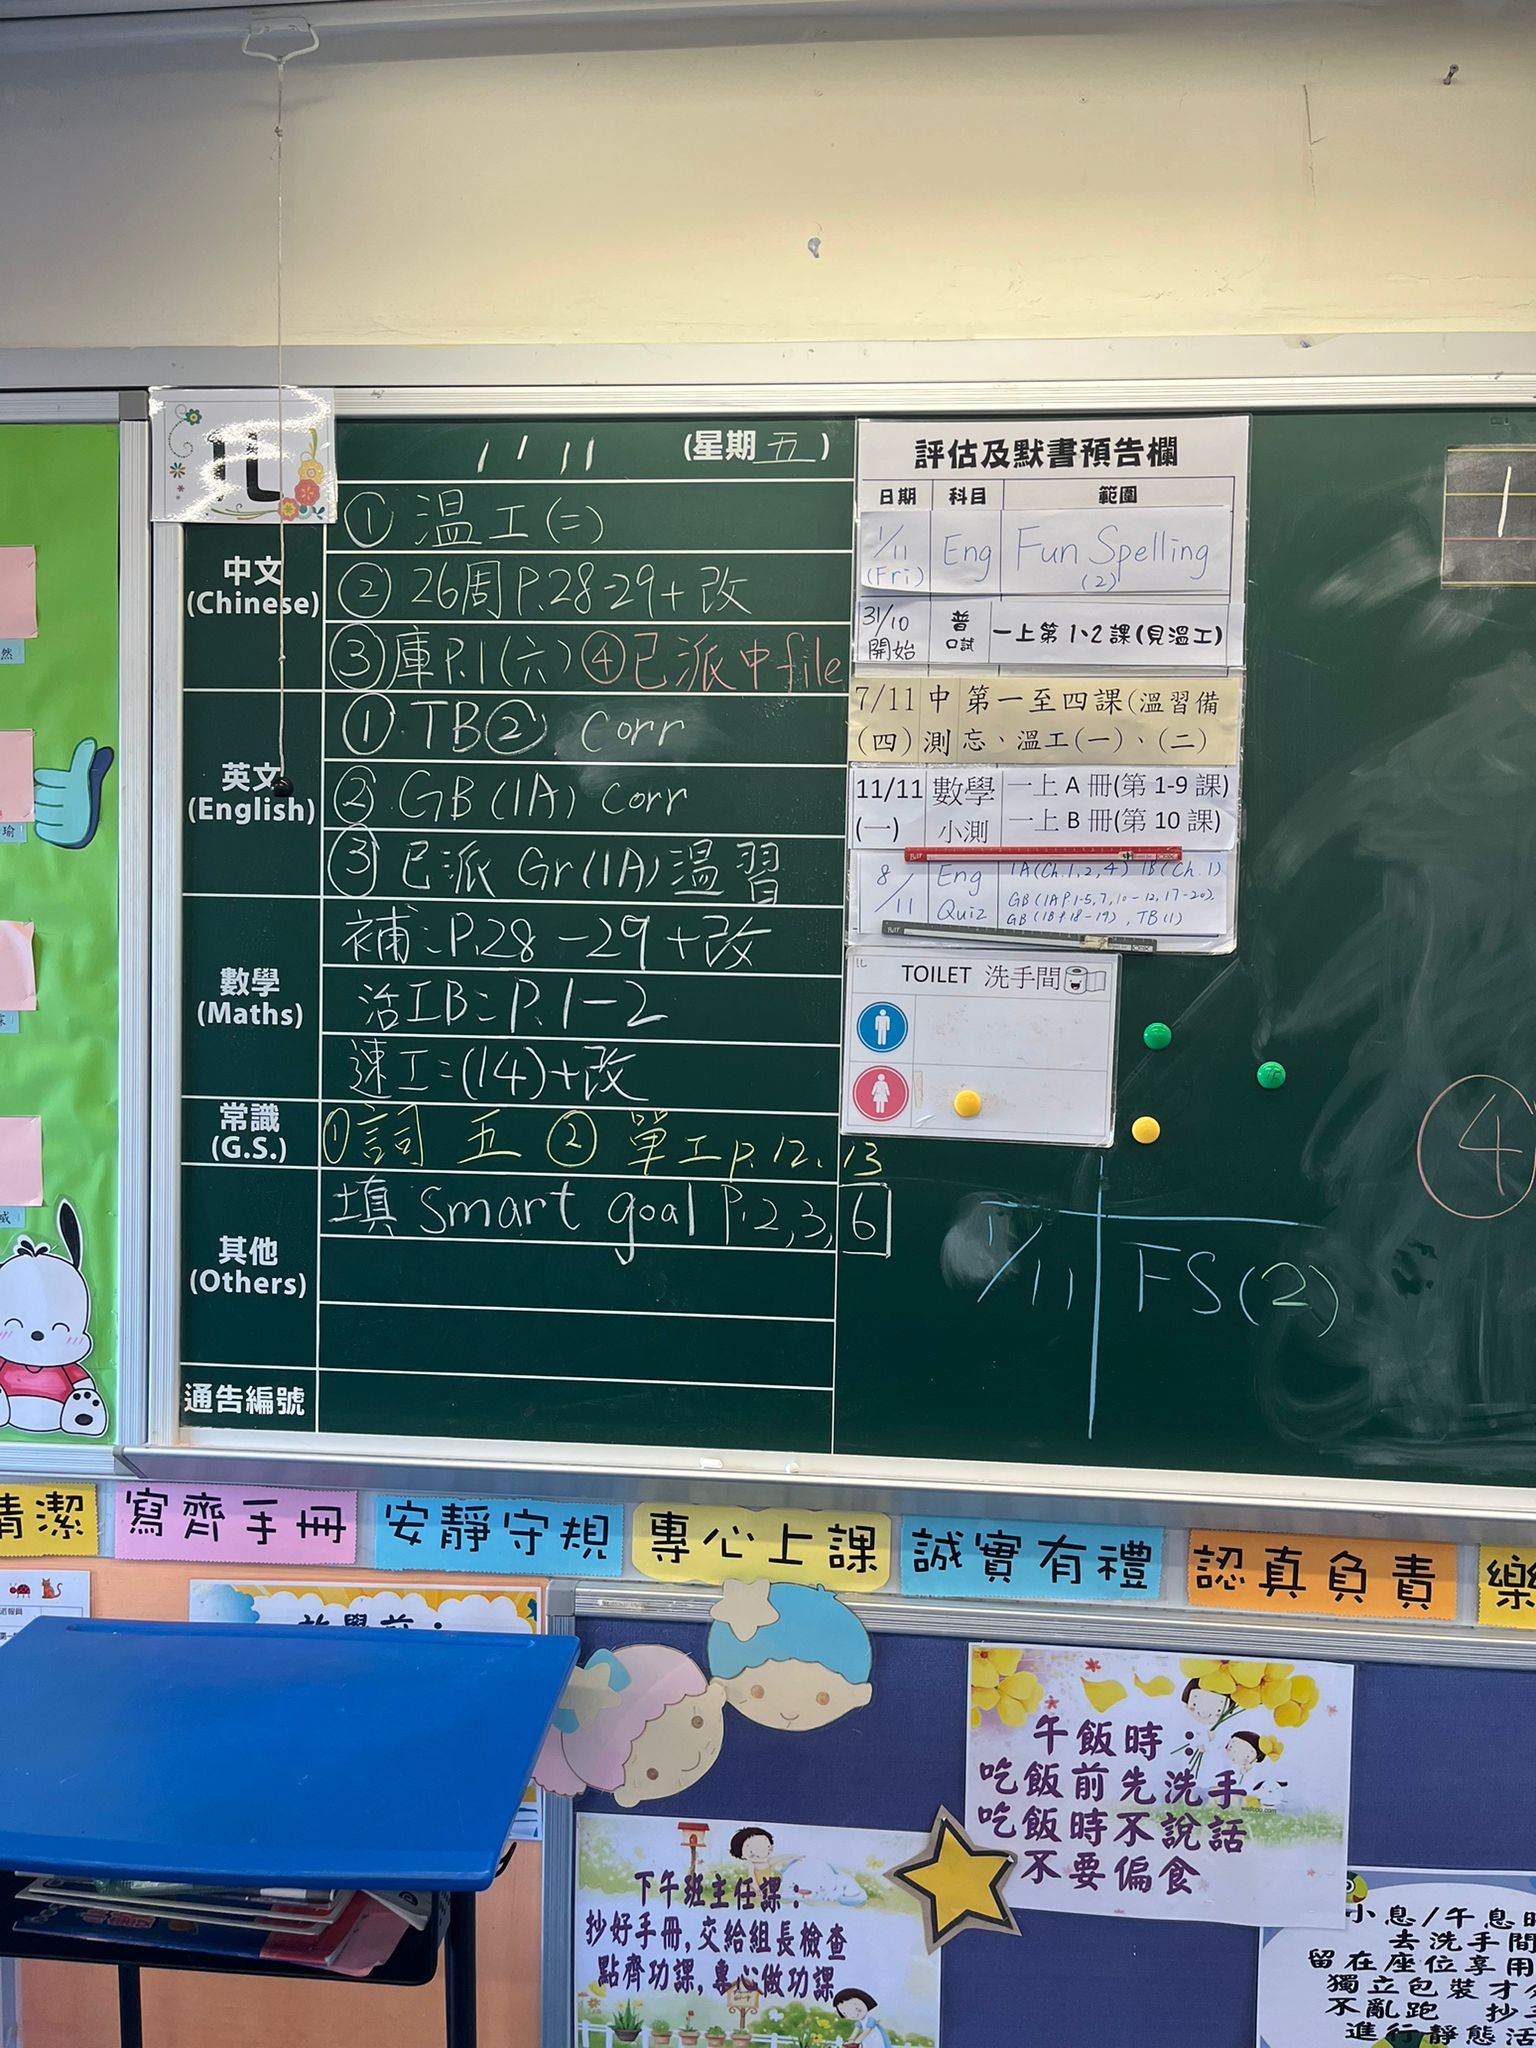 1L
1/11 (星期五)
中文
(Chinese)
① 温工(二)
② 26周P.28-29+改
③ 庫P.1(六) ④已派中file
英文
(English)
① TB② corr
② GB(1A) corr
③ 已派 Gr(1A)温習
數學
(Maths)
補:P.28-29+改
活工B:P.1-2
速工:(14)+改
常識
(G.S.)
①詞 五 ② 單工p.12、13
其他
(Others)
填 Smart goal P.2,3,6
通告編號
評估及默書預告欄
日期 科目 範圍
1/11 (Fri) Eng Fun Spelling (2)
31/10 開始 普 口試 一上第1、2課(見溫工)
7/11 中 第一至四課(溫習備
(四) 測 忘、溫工(一)、(二)
11/11 數學 一上 A 冊(第 1-9 課)
(一) 小測 一上 B 冊(第 10 課)
8/11 Eng Quiz 1A(Ch.1,2,4) 1B(Ch.1)
GB(1A P1-5,7,10-12,17-20),
GB(1B P18-19), TB(1)
1L
TOILET 洗手間
1
④
1/11 FS(2)
清潔
寫齊手冊
安靜守規
專心上課
誠實有禮
認真負責
樂
午飯時：
吃飯前先洗手
吃飯時不說話
不要偏食
下午班主任課：
抄好手冊,交給組長檢查
點齊功課,專心做功課
小息/午息時
去洗手間
留在座位享用
獨立包裝才
不亂跑 抄
進行靜態活